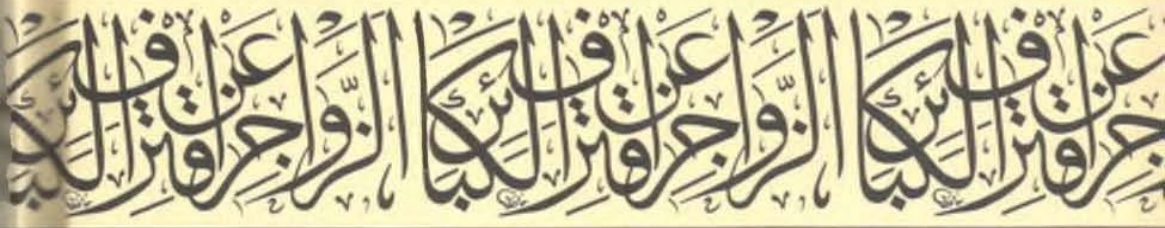 جر عن اقتراف الكبائر الزَّواجر عن اقتراف الكبائر الزَّواجر عن اقتراف الكبائر